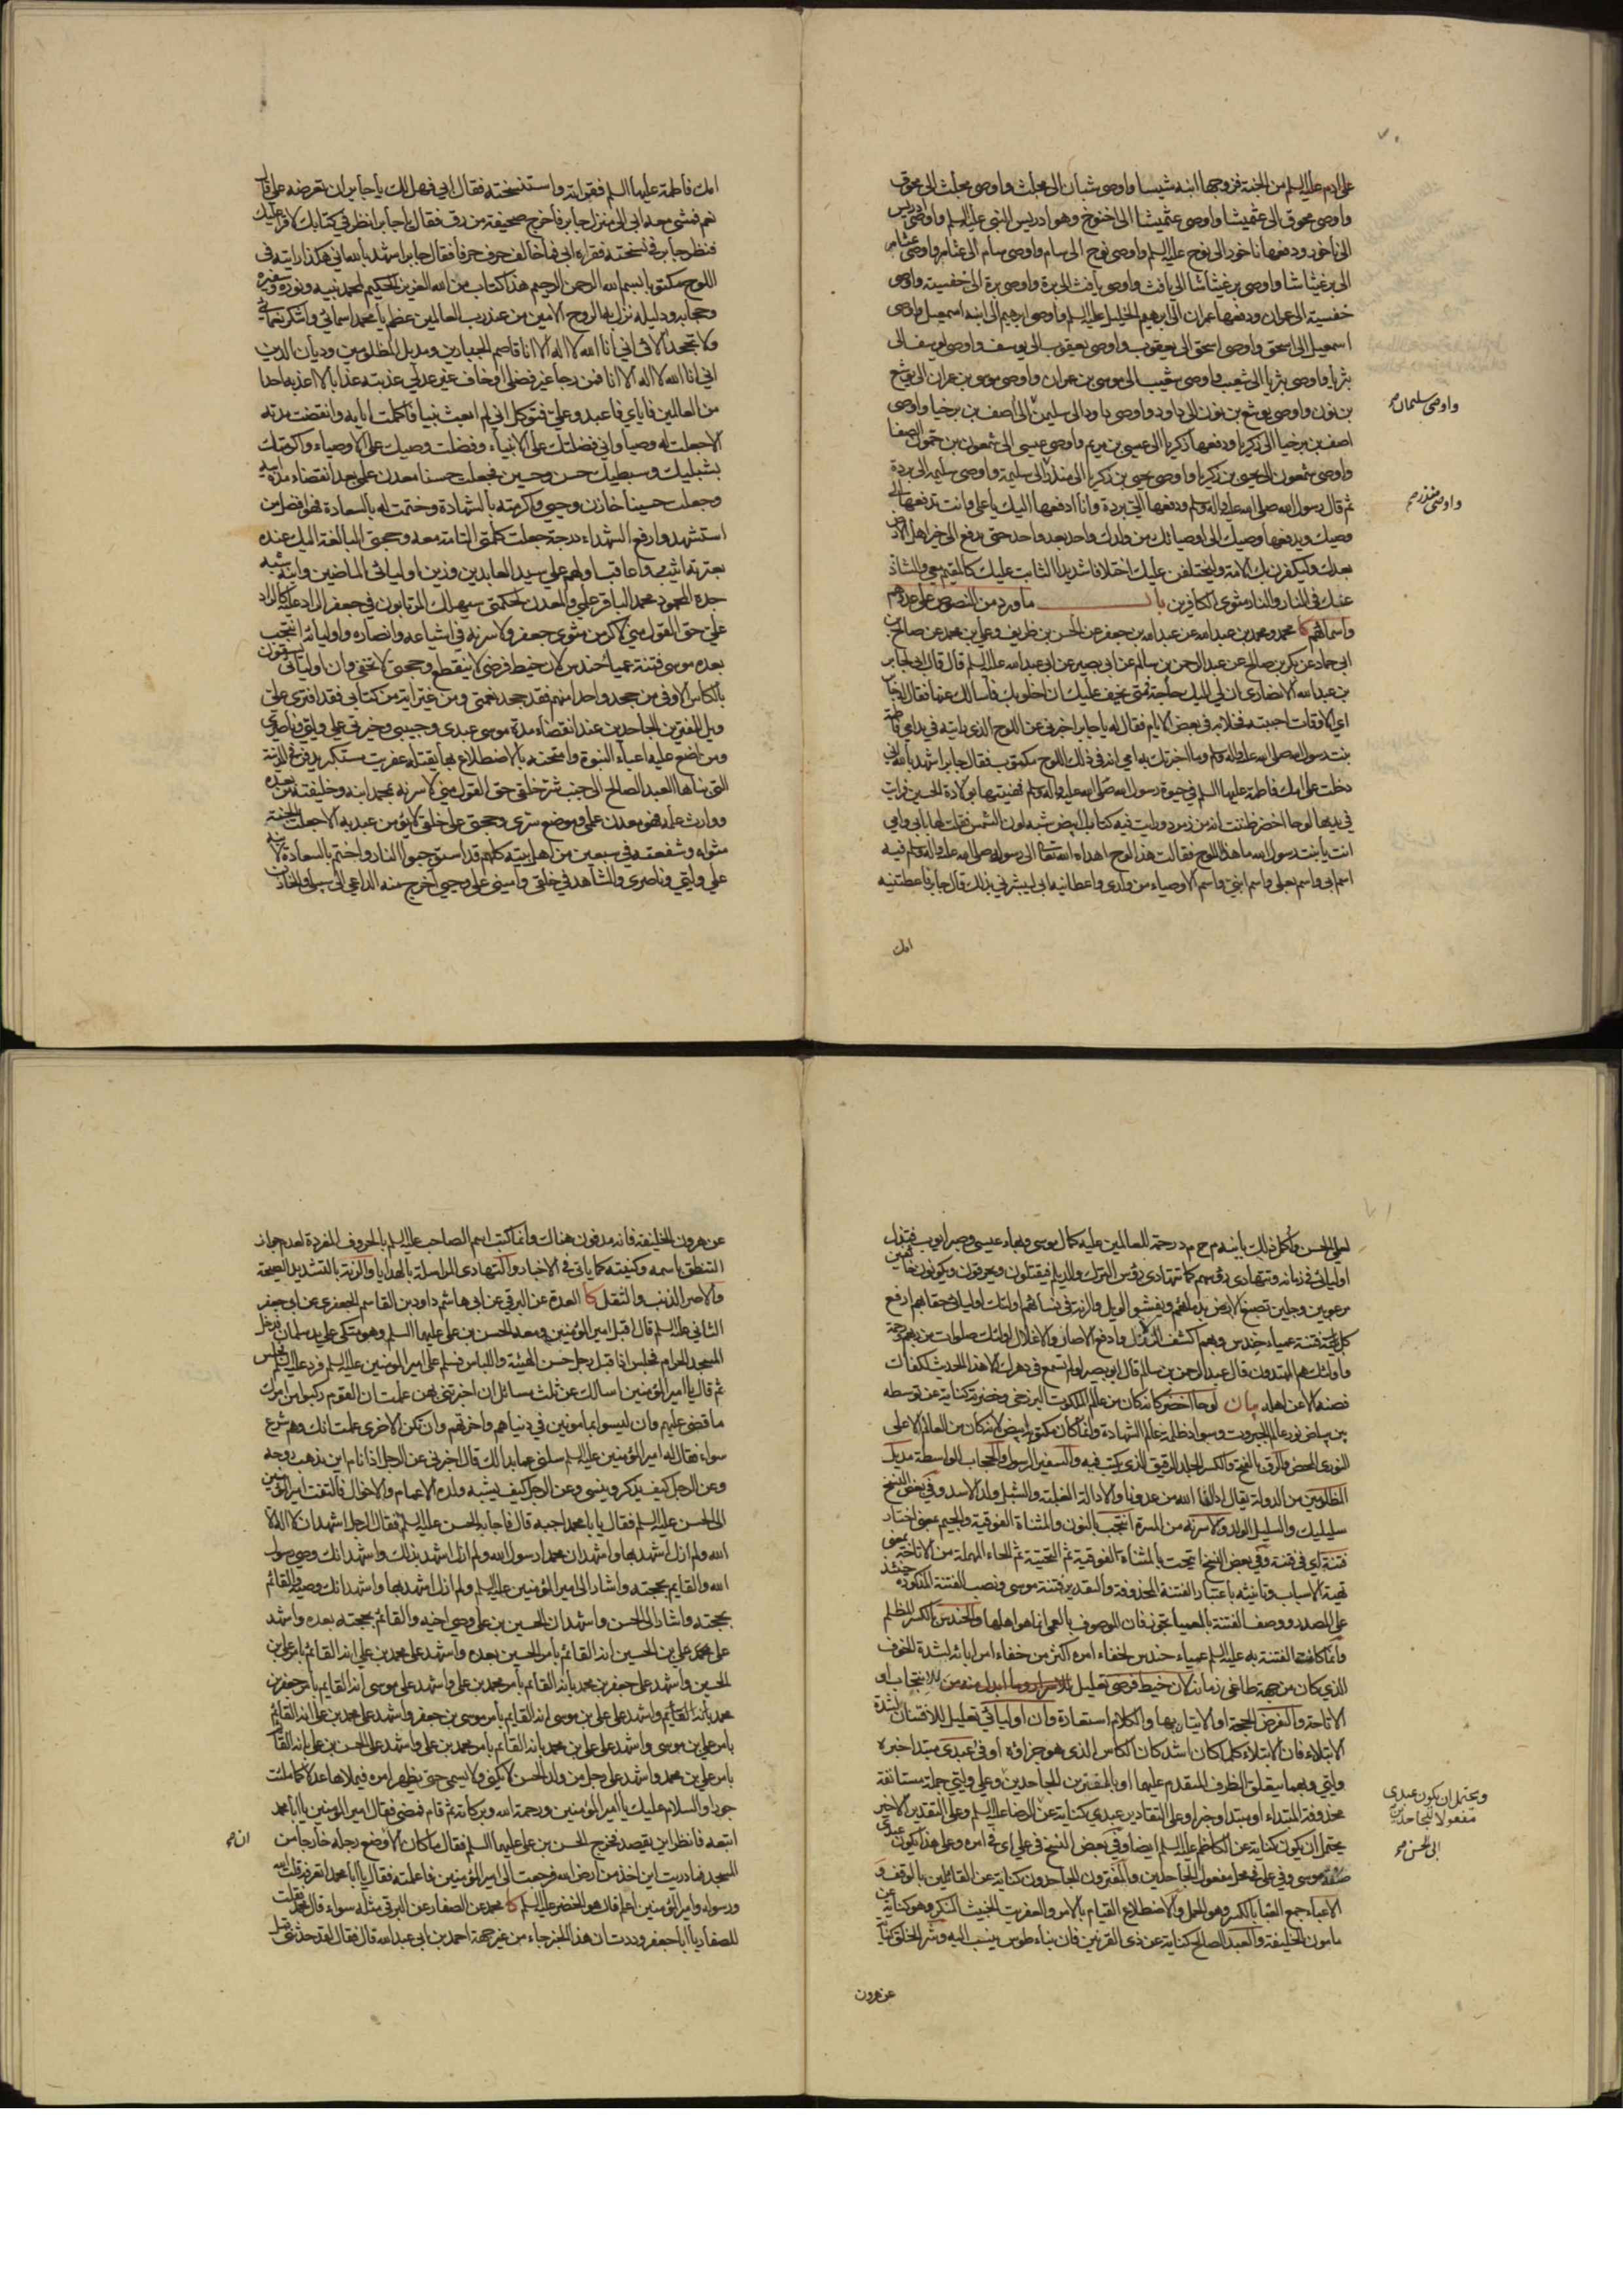 على ادم عليه السلم من الجنة فزوجها ابنه شيسا واوصى شبان الى مجلث واوصى مجلث الى محوق
واوصى محوق الى عثميشا واوصى عثميشا الى اخنوخ وهو ادريس النبى عليه السلم واوصى ادريس
الى ناخور ودفعها ناخور الى نوح عليه السلم واوصى نوح الى سام واوصى سام الى عثامر واوصى عثامر
الى برغيثاشا واوصى برغيثاشا الى يافث واوصى يافث الى برة واوصى برة الى خفسيته واوصى
خفسيته الى عمران ودفعها عمران الى ابرهيم الخليل عليه السلم واوصى ابرهيم الى ابنه اسمعيل واوصى
اسمعيل الى اسحق واوصى اسحق الى يعقوب واوصى يعقوب الى يوسف واوصى يوسف الى
بثريا واوصى بثريا الى شعيب واوصى شعيب الى موسى بن عمران واوصى موسى بن عمران الى يوشع
بن نون واوصى يوشع بن نون الى داود واوصى داود الى سليمن الى اصف بن برخيا واوصى
واوصى سليمان صح
اصف بن برخيا الى زكريا ودفعها زكريا الى عيسى بن مريم واوصى عيسى الى شمعون بن حمون الصفا
واوصى شمعون الى يحيى بن زكريا واوصى يحيى بن زكريا الى منذر الى سليمة واوصى سليمه الى بردة
واوصى منذر صح
ثم قال رسول الله صلى الله عليه واله وسلم ودفعها الى بردة وانا ادفعها اليك يا على وانت تدفعها الى
وصيك ويدفعها وصيك الى اوصيائك من ولدك واحد بعد واحد حتى يدفع الى خير اهل الارض
بعدك وليكفرن بك الامة وليختلفن عليك اختلافا شديدا الثابت عليك كالمقيم معى والشاذ
عنك فى النار والنار مثوى الكافرين باب ما ورد من النصوص على عددهم
واسمائهم كا محمد ومحمد بن عبدالله عن عبدالله بن جعفر عن الحسن بن ظريف وعلى بن محمد عن صالح بن
ابى حماد عن بكر بن صالح عن عبد الرحمن بن سالم عن ابى بصير عن ابى عبدالله عليه السلم قال قال ابى لجابر
بن عبدالله الانصارى ان لى اليك حاجة فمتى يخف عليك ان اخلو بك فاسالك عنها فقال له جابر
اى الاوقات احببته فخلا به فى بعض الايام فقال له يا جابر اخبرنى عن اللوح الذى رايته فى يد امى فاطمة
بنت رسول الله صلى الله عليه واله وسلم وما اخبرتك به امى انه فى ذلك اللوح مكتوب فقال جابر اشهد بالله انى
دخلت على امك فاطمة عليها السلم فى حيوة رسول الله صلى الله عليه واله وسلم فهنيتها بولادة الحسين فرايت
فى يديها لوحا اخضر ظننت انه من زمرد ورايت فيه كتابا ابيض شبه لون الشمس فقلت لها بابى وامى
انت يا بنت رسول الله ما هذا اللوح فقالت هذا لوح اهداه الله تعالى الى رسوله صلى الله عليه واله وسلم فيه
اسم ابى واسم بعلى واسم ابنى واسم الاوصياء من ولدى واعطانيه ابى ليبشرنى بذلك قال جابر فاعطتنيه
امك
امك فاطمة عليها السلم فقراته واستنسخته فقال ابى فهل لك يا جابر ان تعرضه على قال
نعم فمشى معه ابى الى منزل جابر فاخرج صحيفة من رق فقال يا جابر انظر فى كتابك لاقرا عليك
فنظر جابر فى نسخته فقراه ابى فما خالف حرف حرفا فقال جابر اشهد بالله انى هكذا رايته فى
اللوح مكتوبا بسم الله الرحمن الرحيم هذا كتاب من الله العزيز الحكيم لمحمد نبيه ونوره وسفيره
وحجابه ودليله نزل به الروح الامين من عند رب العالمين عظم يا محمد اسمائى واشكر نعمائى
ولا تجحد الائى انى انا الله لا اله الا انا قاصم الجبارين ومديل المظلومين وديان الدين
انى انا الله لا اله الا انا فمن رجا غير فضلى او خاف غير عدلى عذبته عذابا لا اعذبه احدا
من العالمين فاياى فاعبد وعلى فتوكل انى لم ابعث نبيا فاكملت ايامه وانقضت مدته
الا جعلت له وصيا وانى فضلتك على الانبياء وفضلت وصيك على الاوصياء واكرمتك
بشبليك وسبطيك حسن وحسين فجعلت حسنا معدن علمى بعد انقضاء مدة ابيه
وجعلت حسينا خازن وحيى واكرمته بالشهادة وختمت له بالسعادة فهو افضل من
استشهد وارفع الشهداء درجة جعلت كلمتى التامة معه وحجتى البالغة اليك عنده
بعترته اثيب واعاقب اولهم على سيد العابدين وزين اوليائى الماضين وابنه شبه
جده المحمود محمد الباقر علمى والمعدن لحكمتى سيهلك المرتابون فى جعفر الراد عليه كالراد
على حق القول منى لاكرمن مثوى جعفر ولاسرنه فى اشياعه وانصاره واوليائه انتجب
بعده موسى فتنة عمياء حندس لان خيط فرضى لا ينقطع وحجتى لا تخفى وان اوليائى يسقون
بالكاس الاوفى من جحد واحدا منهم فقد جحد نعمتى ومن غير اية من كتابى فقد افترى على
ويل للمفترين الجاحدين عند انقضاء مدة موسى عبدى وحبيبى وخيرتى على وليى وناصرى
ومن اضع عليه اعباء النبوة وامتحنه بالاضطلاع بها يقتله عفريت مستكبر يدفن فى المدينة
التى بناها العبد الصالح الى جنب شر خلقى حق القول منى لاسرنه بمحمد ابنه وخليفته من بعده
ووارث علمه فهو معدن علمى وموضع سرى وحجتى على خلقى لا يؤمن عبد به الا جعلت الجنة
مثواه وشفعته فى سبعين من اهل بيته كلهم قد استوجبوا النار واختم بالسعادة لابنه
على وليى وناصرى والشاهد فى خلقى وامينى على وحيى اخرج منه الداعى الى سبيلى والخازن
لعلمى الحسن واكمل ذلك بابنه م ح م د رحمة للعالمين عليه كمال موسى وبهاء عيسى وصبر ايوب فيذل
اوليائى فى زمانه وتتهادى رؤسهم كما تتهادى رؤس الترك والديلم فيقتلون ويحرقون ويكونون خائفين
مرعوبين وجلين تصبغ الارض بدمائهم ويفشو الويل والرنة فى نسائهم اولئك اوليائى حقا بهم ارفع
كل فتنة عمياء حندس وبهم اكشف الزلازل وادفع الاصار والاغلال اولئك صلوات من ربهم ورحمة
واولئك هم المهتدون قال عبد الرحمن بن سالم قال ابو بصير لو لم تسمع فى دهرك الا هذا الحديث لكفاك
فصنه الا عن اهله بيان لوحا اخضر كانه كان من عالم الملكوت البرزخى وخضرته كناية عن توسطه
بين بياض نور عالم الجبروت وسواد ظلمة عالم الشهادة وانما كان مكتوبه ابيض لانه كان من العالم الاعلى
النورى المحض والرق بالفتح والكسر الجلد الرقيق الذى يكتب فيه والسفير الرسول والحجاب الواسطة مديل
المظلومين من الدولة يقال ادالنا الله من عدونا والادالة الغلبة والشبل ولد الاسد وفى بعض النسخ
سليليك والسليل الولد ولاسرنه من المسرة انتجب بالنون والمثناة الفوقية والجيم بمعنى اختار
فتنة اى فى فتنة وفى بعض النسخ اتيحت بالمثناة الفوقية ثم التحتية ثم الحاء المهملة من الاتاحة بمعنى
تهيئة الاسباب وتانيثه باعتبار الفتنة المحذوفة والتقدير فتنة موسى ونصب الفتنة المذكورة حينئذ
على المصدر ووصف الفتنة بالعمياء تجوز فان الموصوف بالعمى انما هو اهلها والحندس بالكسر المظلم
وانما كانت الفتنة به عليه السلم عمياء حندس لخفاء امره اكثر من خفاء امر ابائه لشدة الخوف
الذى كان من جهة طاغى زمانه لان خيط فرضى تعليل للانتجاب او
الاتاحة والغرض الحجة او الايتار بها والكلام استعارة وان اوليائى تعليل للافتنان لشدة
الابتلاء فان الابتلاء كلما كان اشد كان الكاس الذى هو جزاؤه اوفى عبدى مبتدا خبره
وليى وبعما يتعلق الظرف المتقدم عليها او بالمفترين للجاحدين وعلى وليى جملة مستانفة
محذوفة المبتداء او مبتدا وخبر وعلى التقادير عبدى كناية عن الرضا عليه السلم وعلى التقدير الاخير
ويحتمل ان يكون عبدى
مفعولا للجاحدين
الى الحسن صح
يحتمل ان يكون كناية عن الكاظم عليه السلم ايضا وفى بعض النسخ فى على اى فى امره وعلى هذا يكون عبدى
صفة موسى وفى على فى محل مفعول الجاحدين والمفترون الجاحدون كناية عن القائلين بالوقف و
الاعباء جمع العبا بالكسر وهو الحمل والاضطلاع القيام بالامر والعفريت الخبيث المنكر وهو كناية عن
مامون الخليفة والعبد الصالح كناية عن ذى القرنين فان بناء طوس ينسب اليه وشر الخلق كناية
عن هرون
عن هرون الخليفة فانه مدفون هناك وانما كتب اسم الصاحب عليه السلم بالحروف المفردة لعدم جواز
التنطق باسمه وكنيته كما ياتى فى الاخبار والتهادى المراسلة بالهدايا والرنة بالتشديد الصيحة
والاصر الذنب والثقل كا العدة عن البرقى عن ابى هاشم داود بن القاسم الجعفرى عن ابى جعفر
الثانى عليه السلم قال اقبل امير المؤمنين ومعه الحسن بن على عليهما السلم وهو متكى على يد سلمان فدخل
المسجد الحرام فجلس اذ اقبل رجل حسن الهيئة واللباس فسلم على امير المؤمنين عليه السلم فرد عليه السلم فجلس
ثم قال يا امير المؤمنين اسالك عن ثلث مسائل ان اخبرتنى بهن علمت ان القوم ركبوا من امرك
ما قضى عليهم وان ليسوا بمامونين فى دنياهم واخرتهم وان تكن الاخرى علمت انك وهم شرع
سواء فقال له امير المؤمنين عليه السلم سلنى عما بدا لك قال اخبرنى عن الرجل اذا نام اين تذهب روحه
وعن الرجل كيف يذكر وينسى وعن الرجل كيف يشبه ولده الاعمام والاخوال فالتفت امير المؤمنين
الى الحسن عليه السلم فقال يا با محمد اجبه قال فاجابه الحسن عليه السلم فقال الرجل اشهد ان لا اله الا
الله ولم ازل اشهد بها واشهد ان محمدا رسول الله ولم ازل اشهد بذلك واشهد انك وصى رسول
الله والقايم بحجته واشار الى امير المؤمنين عليه السلم ولم ازل اشهد بها واشهد انك وصيه والقائم
بحجته واشار الى الحسن واشهد ان الحسين بن على وصى اخيه والقائم بحجته بعده واشهد
على على بن الحسين انه القائم بامر الحسين بعده واشهد على محمد بن على انه القائم بامر على بن
الحسين واشهد على جعفر بن محمد بانه القائم بامر محمد بن على واشهد على موسى انه القايم بامر جعفر بن
محمد بانه القائم واشهد على على بن موسى انه القايم بامر موسى بن جعفر واشهد على محمد بن على انه القائم
بامر على بن موسى واشهد على على بن محمد بانه القائم بامر محمد بن على واشهد على الحسن بن على بانه القائم
بامر على بن محمد واشهد على رجل من ولد الحسن لا يكنى ولا يسمى حتى يظهر امره فيملاها عدلا كما ملئت
جورا والسلام عليك يا امير المؤمنين ورحمة الله وبركاته ثم قام فمضى فقال امير المؤمنين يا ابا محمد
اتبعه فانظر اين يقصد فخرج الحسن بن على عليهما السلم فقال ما كان الا وضع رجله خارجا من
ان صح
المسجد فما دريت اين اخذ من ارض الله فرجعت الى امير المؤمنين فاعلمته فقال يا ابا محمد اتعرفه قلت الله
ورسوله وامير المؤمنين اعلم قال هو الخضر عليه السلم كا محمد عن الصفار عن البرقى مثله سواء قال محمد فقلت
للصفار يا ابا جعفر وددت ان هذا الخبر جاء من غير جهة احمد بن ابى عبدالله قال فقال لقد حدثنى قبل